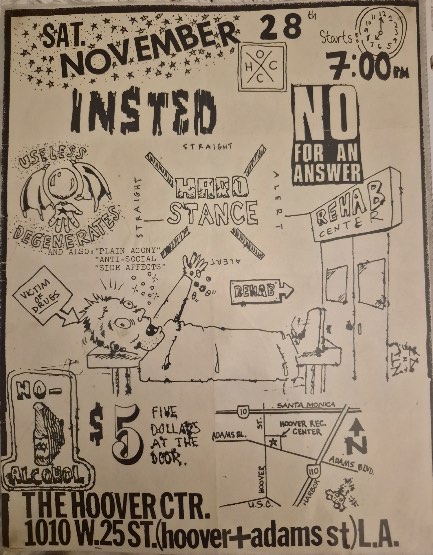 SAT.
NOVEMBER 28th
Starts
7:00 PM
H O C C
INSTED
NO
FOR AN
ANSWER
USELESS
DEGENERATES
STRAIGHT
STRAIGHT
ALERT
ALERT
HARD
STANCE
REHAB
CENTER
AND ALSO: "PLAIN AGONY"
"ANTI-SOCIAL"
"SIDE AFFECTS"
VICTIM
OF
DRUGS
REHAB
NO-
ALCOHOL
$5
FIVE
DOLLARS
AT THE
DOOR.
10
SANTA MONICA
ADAMS BL.
HOOVER REC.
CENTER
HOOVER ST.
ADAMS BLVD.
N
110
HARBOR
U.S.C.
THE HOOVER CTR.
1010 W.25 ST.(hoover+adams st)L.A.